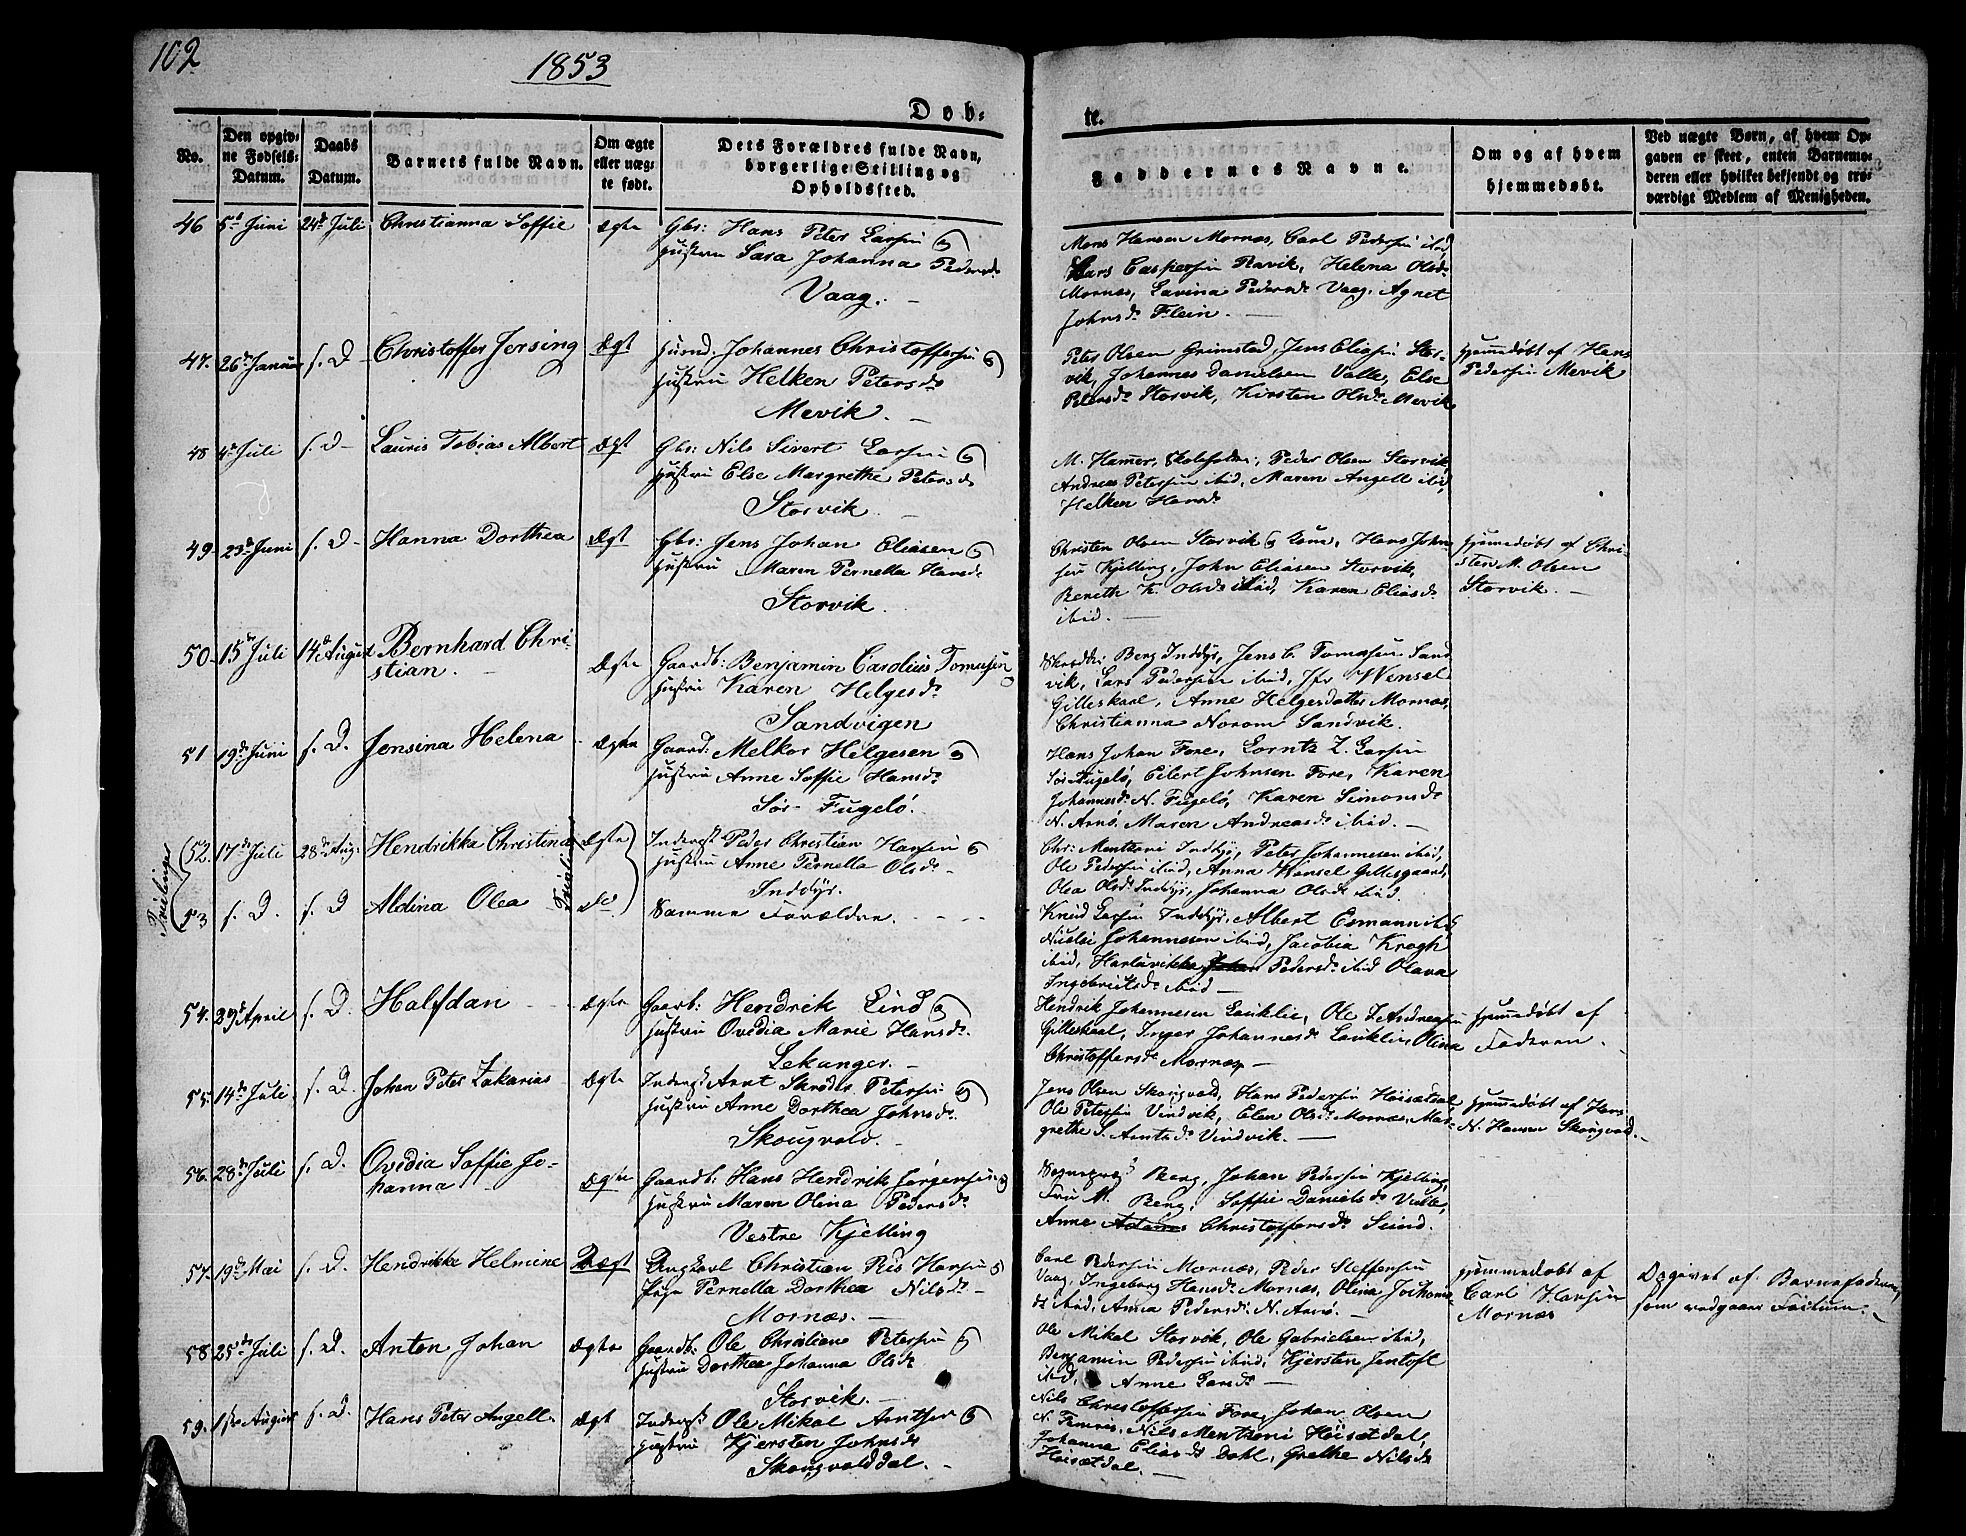 102
1853
Døb-
te.
No.
Den opgiv-
ne Fødsels-
Datum.
Daabs
Datum.
Barnets fulde Navn.
Om ægte
eller uæg-
te født.
Dets Forældres fulde Navn,
borgerlige Stilling og
Opholdssted.
Faddernes Navne.
Om og af hvem
hjemmedøbt.
Ved uægte Børn, af hvem Op-
gaven er skeet, enten Barnemo-
deren eller hvilket bekjendt og tro-
værdigt Medlem af Menigheden.
46 5d Juni 24de Juli Christianna Soffie ægte Gbr: Hans Peter Larsen og
Hustru Sara Johanna Pedersd.
Vaag.
Mons Hansen Mornæs, Carl Pedersen ibid,
Lars Caspersen Ravik, Helena Olsd.
Mornæs, Lavina Pedersd. Vaag, Agnet
Johnsd. Flein.
47. 26de Januar s. D. Christoffer Jersing Ægt Huusmd: Johannes Christoffersen og
Hustru Helken Petersd.
Mevik.
Peter Olsen Grimstad, Jens Eliassen Stor-
vik, Johannes Danielsen Valle, Else
Petersd. Storvik, Kirsten Olsd. Mevik
Hjemmedøbt af Hans
Pedersen Mevik
48 4de Juli s. D. Lauris Tobias Albert Ægt Gbr: Nils Sivert Larsen og
Hustru Else Margrethe Petersd.
Storvik.
M. Hamer, Skoleholder, Peder Olsen Storvik,
Andreas Petersen ibid, Maren Angell ibid,
Helken Hansd.
49. 23de Juni s. D. Hanna Dorthea Ægt Gbr: Jens Johan Eliasen og
Hustru Maren Pernella Hansd.
Storvik.
Christen Olsen Storvik og Kone, Hans John-
sen Kjelling, John Eliasen Storvik,
Bereth K. Olsd. ibid, Karen Eliasd.
ibid.
Hjemmedøbt af Chri-
sten M. Olsen
Storvik.
50. 15de Juli 14de August Bernhard Chri-
stian. Ægte Gaardb: Benjamin Carolius Tomasen og
Hustru Karen Helgesd.
Sandvigen
Berg Inddyr, Jens C. Tomasen Sand
vik, Lars Pedersen ibid, Jfr Wensel
Gilleskaal, Anne Helgesdatter Mornæs,
Christianna Norom Sandvik.
51 19de Juni s. D. Jensina Helena Ægte Gaardb: Melkor Helgesen og
Hustru Anne Soffie Hansd.
Sør-Fugelø.
Hans Johan Fore, Lornts Z. Larsen
Sør Fugelø, Eilert Johnsen Fore, Karen
Johannesd. N. Fugelø, Karen Simonsd.
N. Arnø. Maren Andreasd. ibid.
Tvillinger
52. 17de Juli 28de Aug: Hendrikka Christina Ægte Inderst Peder Christian Hansen og
Hustru Anne Pernella Olsd.
Inddyr.
Chr: Mentzoni Inddyr, Peter Johannesen ibid,
Ole Pedersen ibid, Anna Wensel Gillesgaard,
Olea Olsd. Inddyr, Johanna Olsd. ibid.
53 s. D. s. D Aldina Olea Tvillinger do Samme Forældre.
Knud Larsen Inddyr, Albert Esmann ibd
Nicolai Johannesen ibid, Jacobia Krogh
ibid, Harluvikka Pedersd. ibid Olava
Ingebreitsd. ibid
54. 29de April s. D. Halfdan Ægte Gaardb: Hendrik Lind og
Hustru Ovidia Marie Hansd.
Lekanger.
Hendrik Johannesen Lauklie, Ole I. Andreasen
Gilleskaal, Inger Johannesd. Lauklie, Olina
Christoffersd. Mornæs
Hjemmedøbt af
Faderen.
55. 14de Juli s. D. Johan Peter Zakarias Ægte Inderst Arnt Skrøder Petersen og
Hustru Anne Dorthea Johnsd.
Skougvold.
Jens Olsen Skougvold, Hans Pedersen Høisætdal,
Ole Petersen Vindvik, Elen Olsd. Mornæs, Mar-
grethe S. Arntsd. Vindvik.
Hjemmedøbt af Hans
N. Hansen Skougvold.
56. 28de Juli s. D. Ovidia Soffie Jo-
hanna Ægte Gaardb: Hans Hendrik Jørgensen og
Hustru Maren Olina Pedersd.
Vestre Kjelling
Sogneprest Berg, Johan Pedersen Kjelling,
Fru M. Berg, Soffie Danielsd. Valle,
Anne Christoffersd. Seind.
57. 19de Mai s. D. Hendrikka Helmine Uægt Ungkarl Christian Ris Hansen og
Pige Pernella Dorthea Nilsd.
Mornæs.
Carl Pedersen Mornæs, Peder Steffensen
Vaag, Ingeborg Hansd. Mornæs, Olina Jochoms-
d. ibid, Anna Pedersd. N. Arnø.
Hjemmedøbt af
Carl Hansen
Mornæs
Opgivet af Barnefaderen,
som vedgaaer Factum.
58. 25de Juli s. D. Anton Johan Ægte Gaardb: Ole Christian Petersen og
Hustru Dorthea Johanna Olsd.
Storvik.
Ole Mikal Storvik, Ole Gabrielsen ibid,
Benjamin Pedersen ibid, Kjersten Jentoft
ibid, Anne Larsd.
59. 1ste August s. D. Hans Peter Angell. Ægt Inderst Ole Mikal Arntsen og
Hustru Kjersten Johnsd.
Skougvolddal.
Nils Christoffersen Fore, Johan Olsen
N. Finnæs, Nils Mentzoni Høisætdal,
Johanna Eliasd. Dahl, Grethe Nilsd.
Høisætdal.